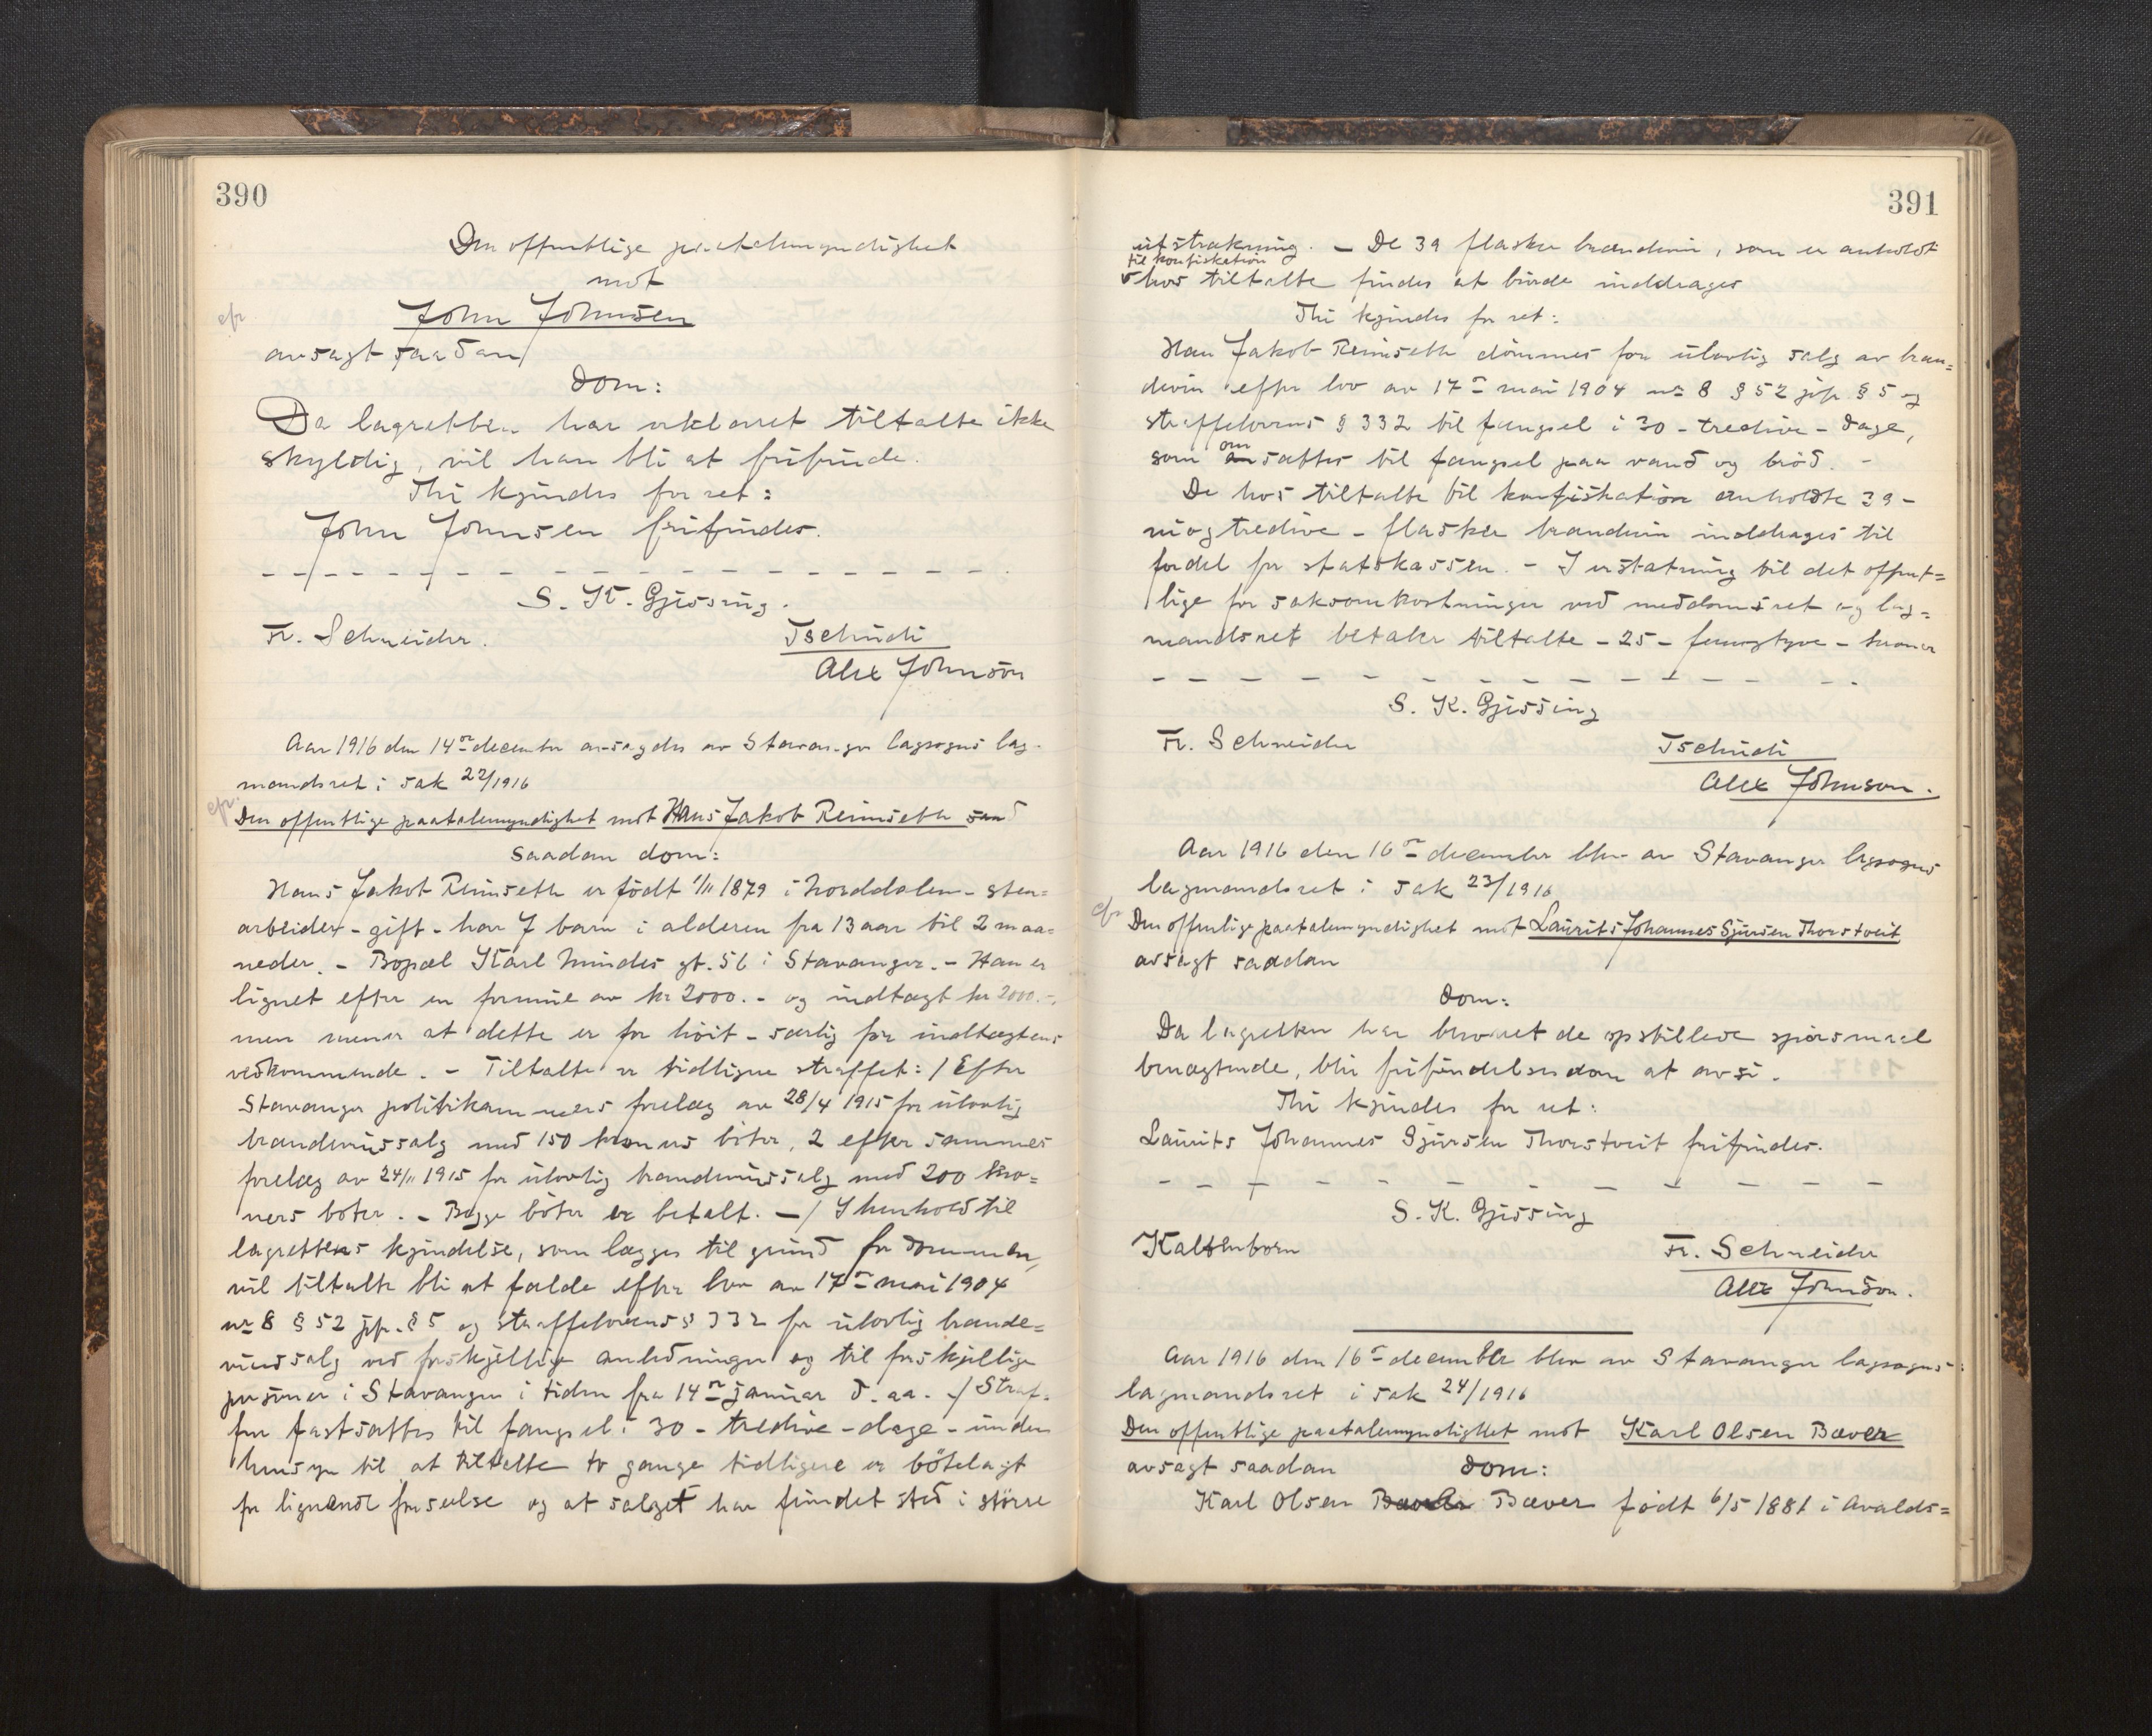 390
Den offentlige paatalemyndighet
mot
cfr. John Johnsen
avsagt saadan
Dom:
Da lagretten har erklæret tiltalte ikke
skyldig, vil han bli at frifinde.
Thi kjendes for ret:
John Johnsen frifindes.
S. K. Gjessing.
Fr. Schneider. Tschudi
Alex Johnson
Aar 1916 den 14de december avsagdes av Stavanger lagsogns lag-
mandsret i sak 22/1916
cfr. Den offentlige paatalemyndighet mot Hans Jakob Reimseth
saadan dom:
Hans Jakob Reimseth er født 1/11 1879 i Norddalen - sten=
arbeider - gift - har 7 barn i alderen fra 13 aar til 2 maa=
neder. - Bopæl Karl gt. 56 i Stavanger. - Han er
lignet efter en formue av kr 2000. - og indtægt kr 2000. -,
men mener at dette er for höit - særlig for indtægtens
vedkommende. - Tiltalte er tidligere straffet: 1 Efter
Stavanger politikammers forelæg av 28/4 1915 for ulovlig
brændevinssalg med 150 kroners böter, 2 efter sammes
forelæg av 24/11 1915 for ulovlig brændevinssalg med 200 kro=
ners böter. - Begge böter er betalt. -/ I henhold til
lagrettens kjendelse, som lægges til grund for dommen,
vil tiltalte bli at fælde efter lov av 17de mai 1904
nr 8 § 52 jfr. § 5 og straffelovens § 332 for ulovlig brænde=
vinssalg ved forskjellige anledninger og til forskjellige
personer i Stavanger i tiden fra 14de januar d. aa. -/ Straf-
fen fastsættes til fængsel i 30 - tredive - dage - under
hensyn til at tiltalte to gange tidligere er bötelagt
for lignende forseelse og at salget har fundet sted i större
391
utstrækning. - De 39 flasker brændevin, som er anholdt
til konfiskation
hos tiltalte findes at burde inddrages
Thi kjendes for ret:
Hans Jakob Reimseth dömmes for ulovlig salg av bræn=
devin efter lov av 17de mai 1904 nr 8 § 52 jfr. § 5 og
straffelovens § 332 til fængsel i 30 - tredive - dage,
om
som ansættes til fængsel paa vand og bröd. -
De hos tiltalte til konfiskation anholdte 39 -
niogtredive - flasker brændevin inddrages til
fordel for statskassen. - I erstatning til det offent=
lige for saksomkostninger ved meddomsret og lag=
mandsret betaler tiltalte - 25 - femogtyve - kroner
S. K. Gjessing
Fr. Schneider Tschudi
Alex Johnson.
Aar 1916 den 16de december blev av Stavanger lagsogns
lagmandsret i sak 23/1916
cfr Den offentlige paatalemyndighet mot Laurits Johannes Sjursen Thorstveit
avsagt saadan
Dom:
Da lagretten har besvaret de opstillede spörsmaal
benægtende, blir frifindelsesdom at avsi.
Thi kjendes for ret:
Laurits Johannes Sjursen Thorstveit frifindes.
S. K. Gjessing
Kaltenborn Fr. Schneider
Alex Johnson.
Aar 1916 den 16de december blev av Stavanger lagsogns
lagmandsret i sak 24/1916
Den offentlige paatalemyndighet mot Karl Olsen Bæver
avsagt saadan Dom:
Karl Olsen Bæver født 6/5 1881 i Avalds=